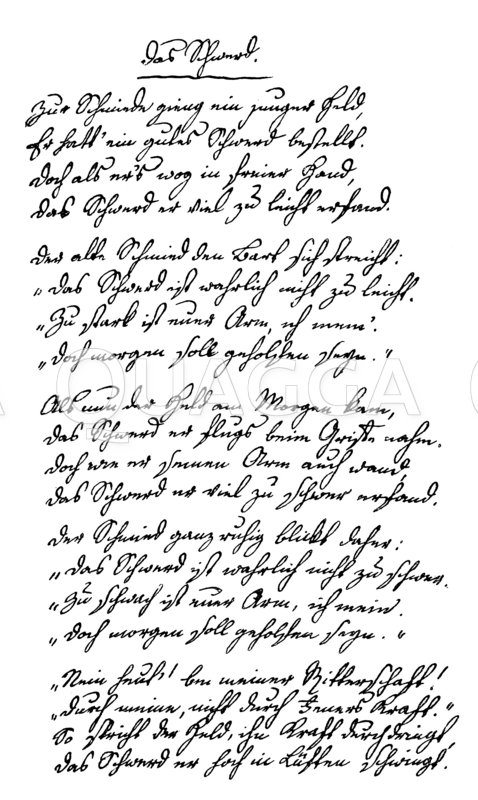 Das Schwerd.
Zur Schmiede gieng ein junger Held,
Er hatt' ein gutes Schwerd bestellt.
Doch als er's wog in freier Hand,
Das Schwerd er viel zu leicht erfand.
Der alte Schmied den Bart sich streicht:
„Das Schwerd ist wahrlich nicht zu leicht.
„Zu stark ist euer Arm, ich mein'.
„Doch morgen soll geholfen seyn."
Als nun der Held am Morgen kam,
Das Schwerd er flugs beim Griffe nahm.
Doch wie er seinen Arm auch wand,
Das Schwerd er viel zu schwer erfand.
Der Schmied ganz ruhig blickt daher:
„Das Schwerd ist wahrlich nicht zu schwer.
„Zu schwach ist euer Arm, ich mein.
„Doch morgen soll geholfen seyn."
„Nein heut'! bei meiner Ritterschaft!
„Durch meine, nicht durch Feuers Kraft."
So spricht der Held, ihn Kraft durchdringt,
Das Schwerd er hoch in Lüften schwingt.
QUAGGA